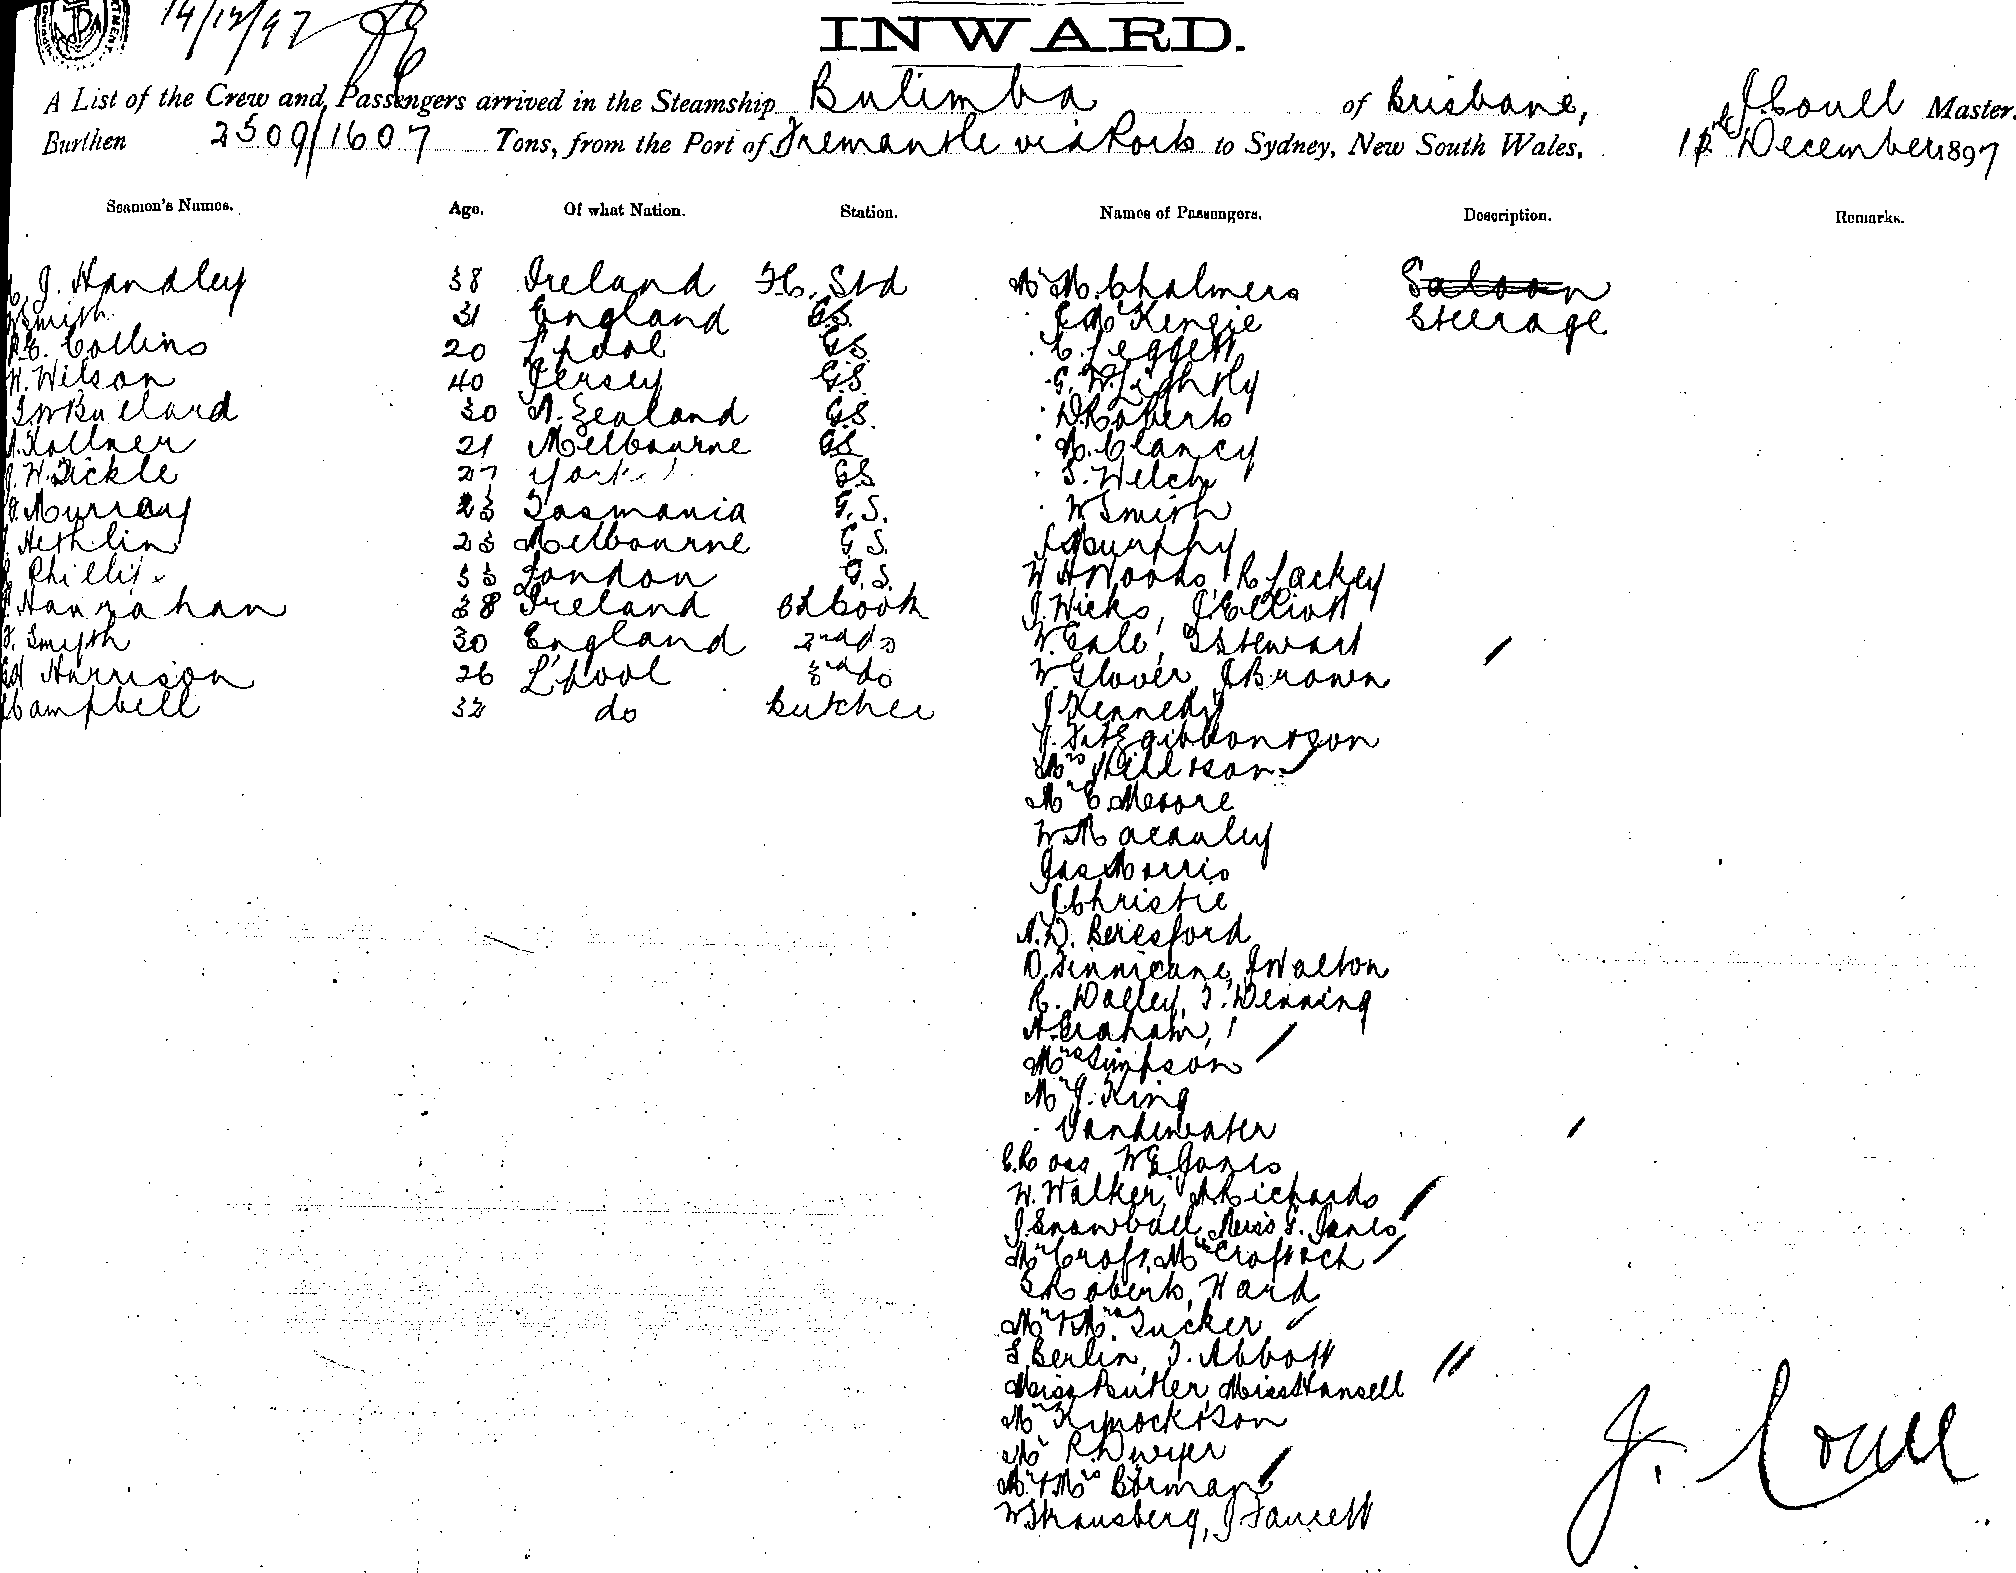 14/12/97
INWARD.
A List of the Crew and Passengers arrived in the Steamship Bulimba of Brisbane, J. Coull Master.
Burthen 2509/1607 Tons, from the Port of Fremantle via Ports to Sydney, New South Wales, December 1897
Seamen's Names. Age. Of what Nation. Station. Names of Passengers. Description. Remarks.
J. Handley 38 Ireland F.C. Std Mr M. Chalmers Saloon
Smith 31 England G.S. McKenzie Steerage
Collins 20 L'pool G.S. C. Leggett
W. Wilson 40 Jersey G.S. G. W. Lightly
Bullard 30 N. Zealand G.S. D. Roberts
Kollner 21 Melbourne G.S. M. Clancy
W. Tickle 27 York G.S. S. Welch
Murray 23 Tasmania G.S. W Smith
Hethlin 23 Melbourne G.S. J Murphy
Phillis 33 London G.S. W H Woods, R Lackey
Hanrahan 38 Ireland Ch Cook J. Wicks, J Elliott
Smyth 30 England 2nd do W. Gale, G Stewart
Harrison 26 L'pool 3rd do W Glover J Brown
Campbell 32 do Butcher J Kennedy
J. Fitzgibbon & son
Mrs & son
Mr C. Moore
W Macauley
Jas Morris
J Christie
A. D. Beresford
D. Finnicane, J Walton
R. Dalley, T. Denning
A Graham,
Mrs Simpson
Mr J. King
Vandewater
C. Ross W E Jones
W. Walker, A Richards
J. Snowball, Miss E. Jones
Mr Croft, Mrs Croft & ch
S Roberts, Ward
Mr & Mrs Tucker
S Berlin, T. Abbott
Miss Butler, Miss Hansell
Mr Kinnock & son
Mr R. Dwyer
Mr & Mrs Borman
W Strausberg, J Faucett
J. Coull